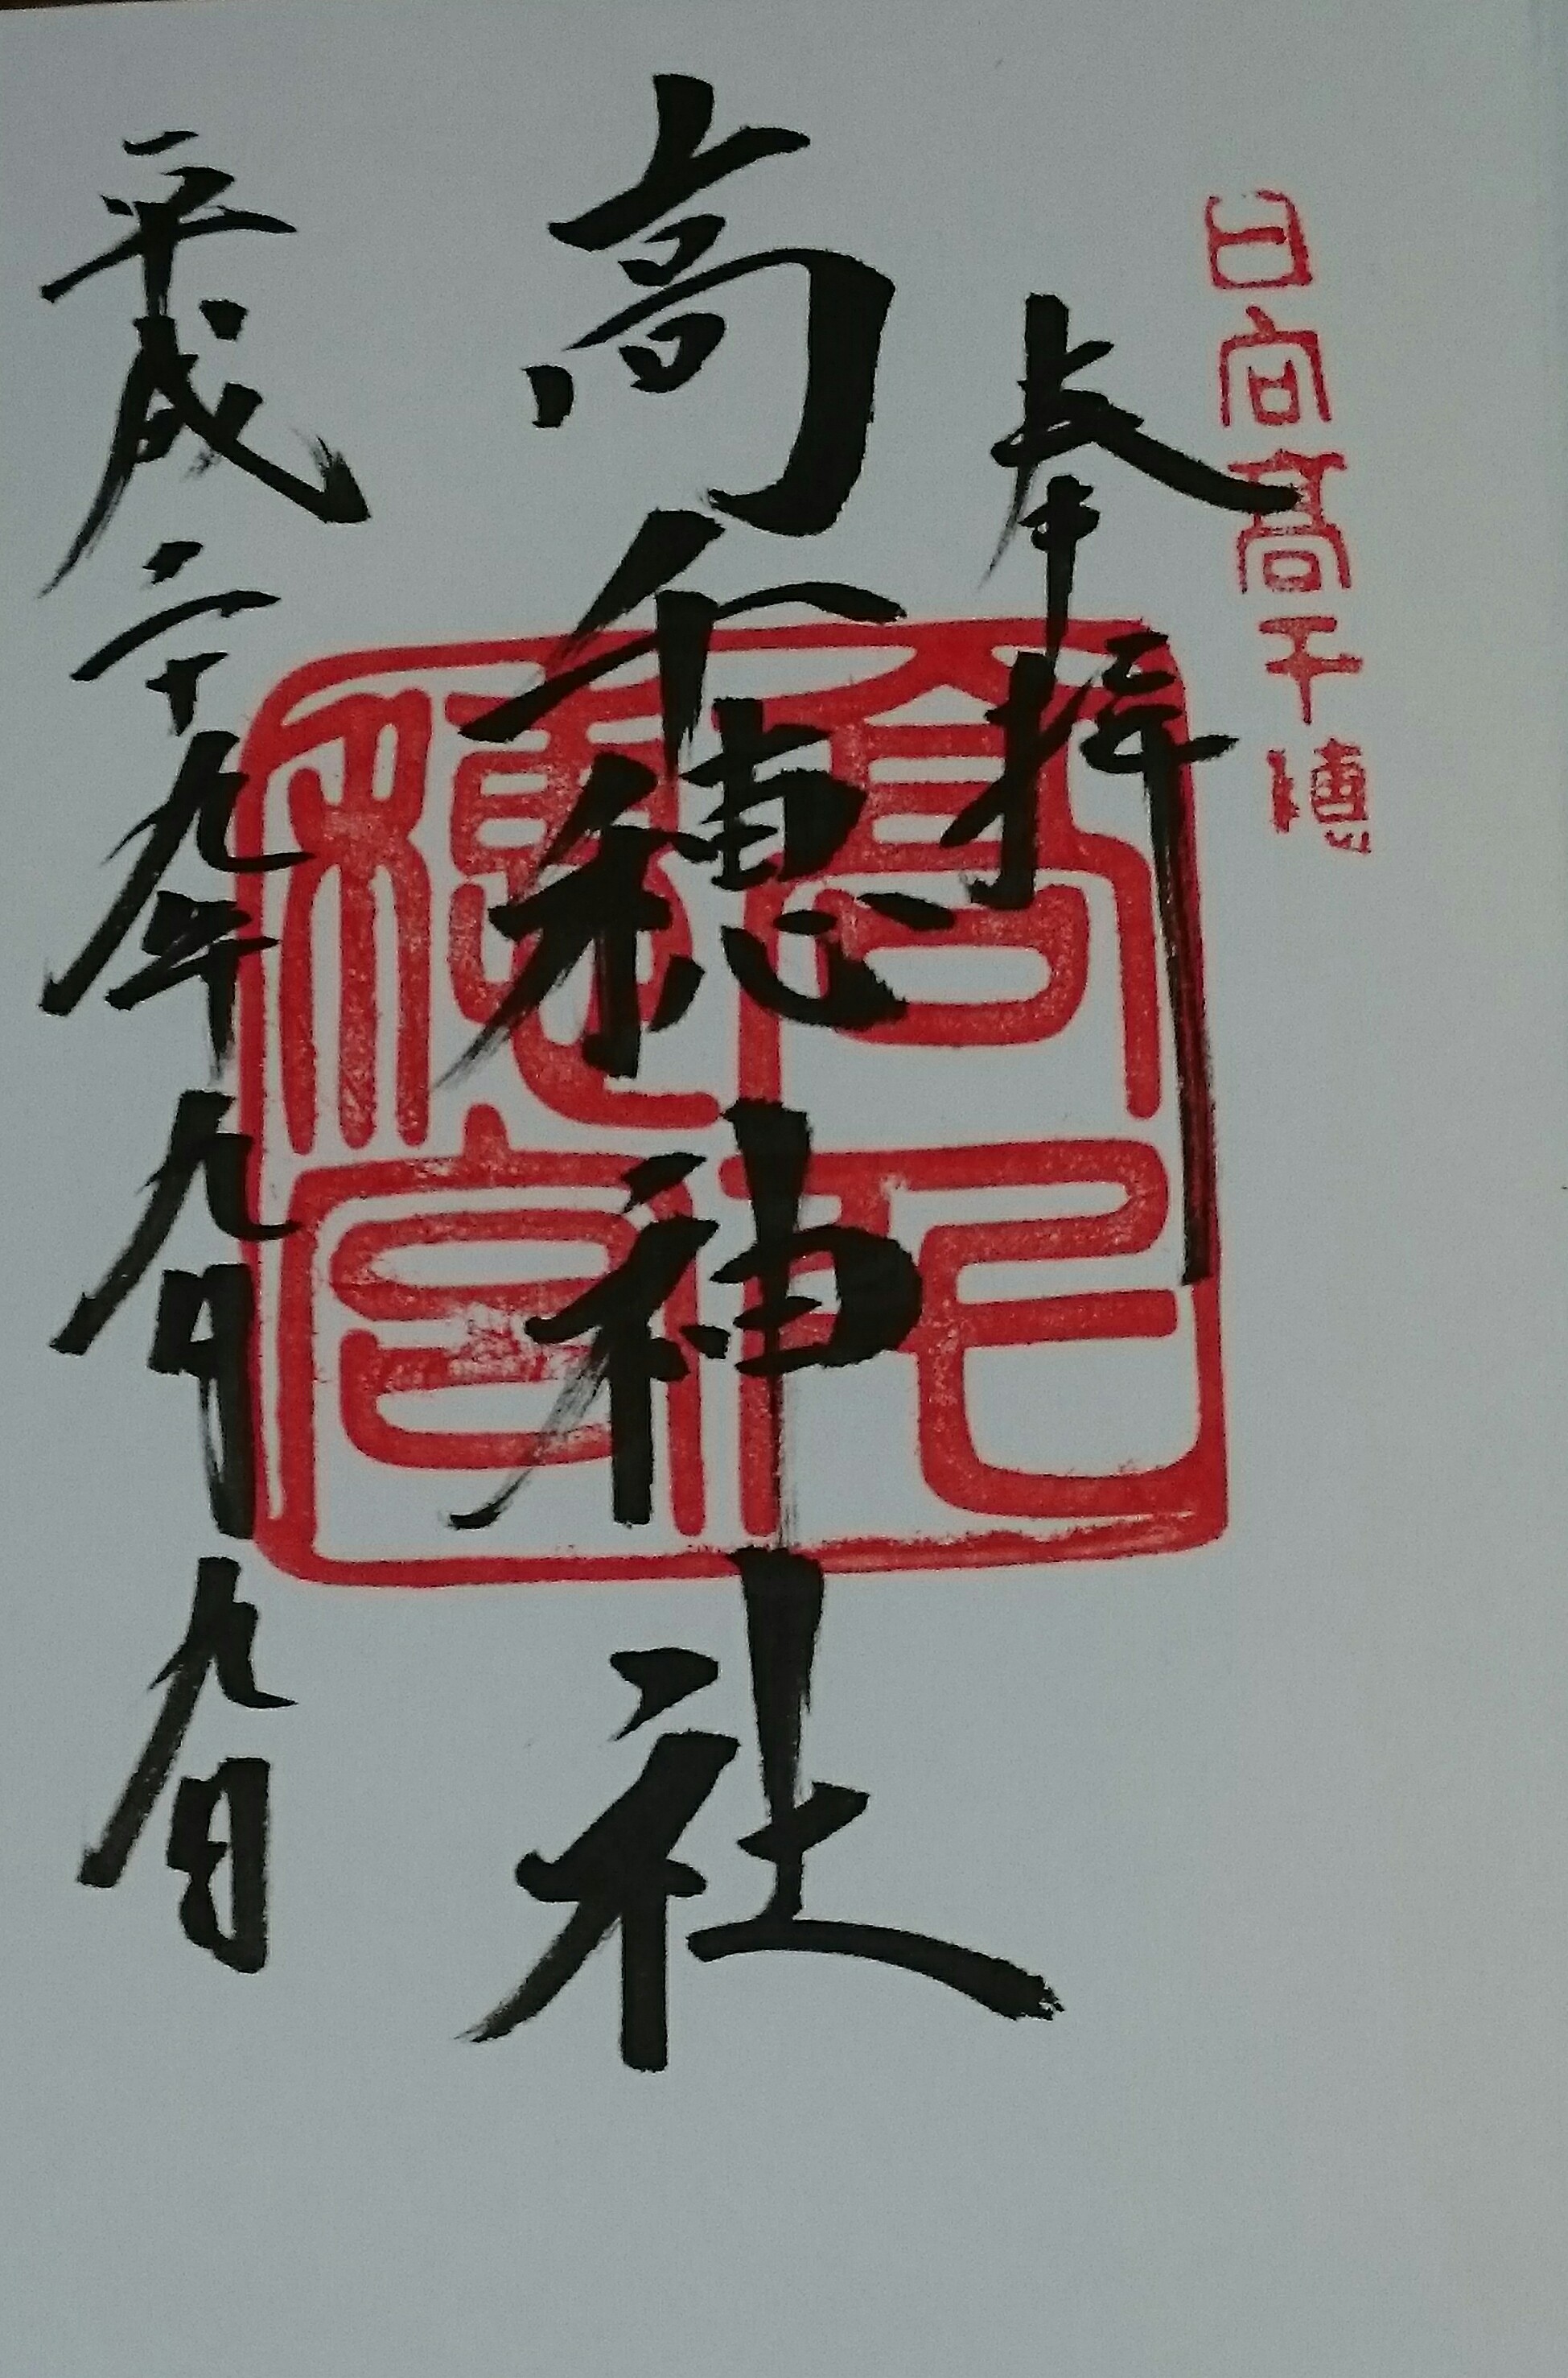 日向高千穂
奉拝
高千穂神社
高千穂宮
平成二十九年九月九日